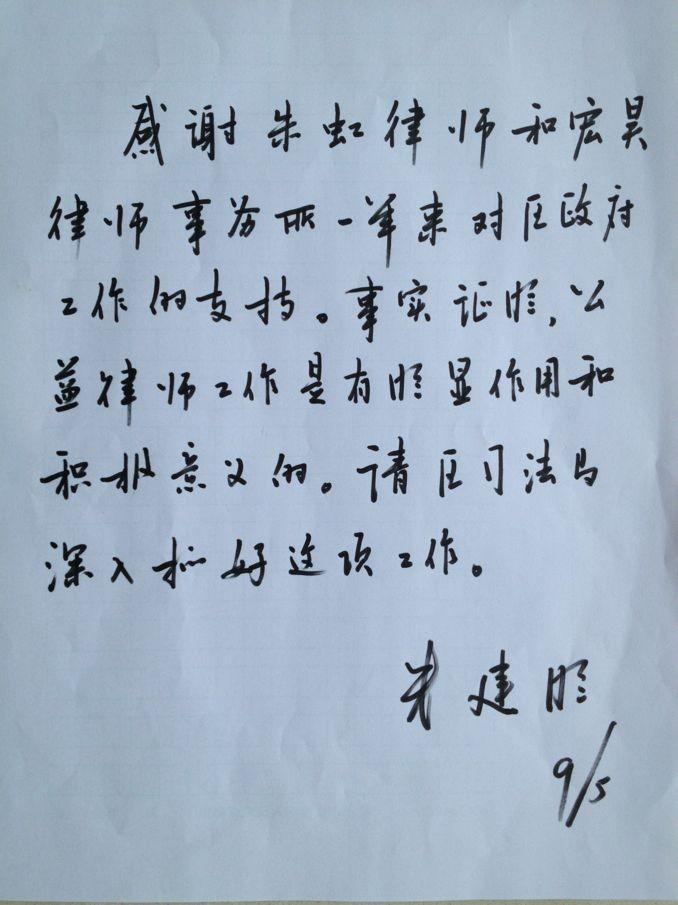 感谢朱虹律师和宏昊
律师事务所一年来对区政府
工作的支持。事实证明,公
益律师工作是有明显作用和
积极意义的。请区司法局
深入抓好这项工作。
朱建明
9/5